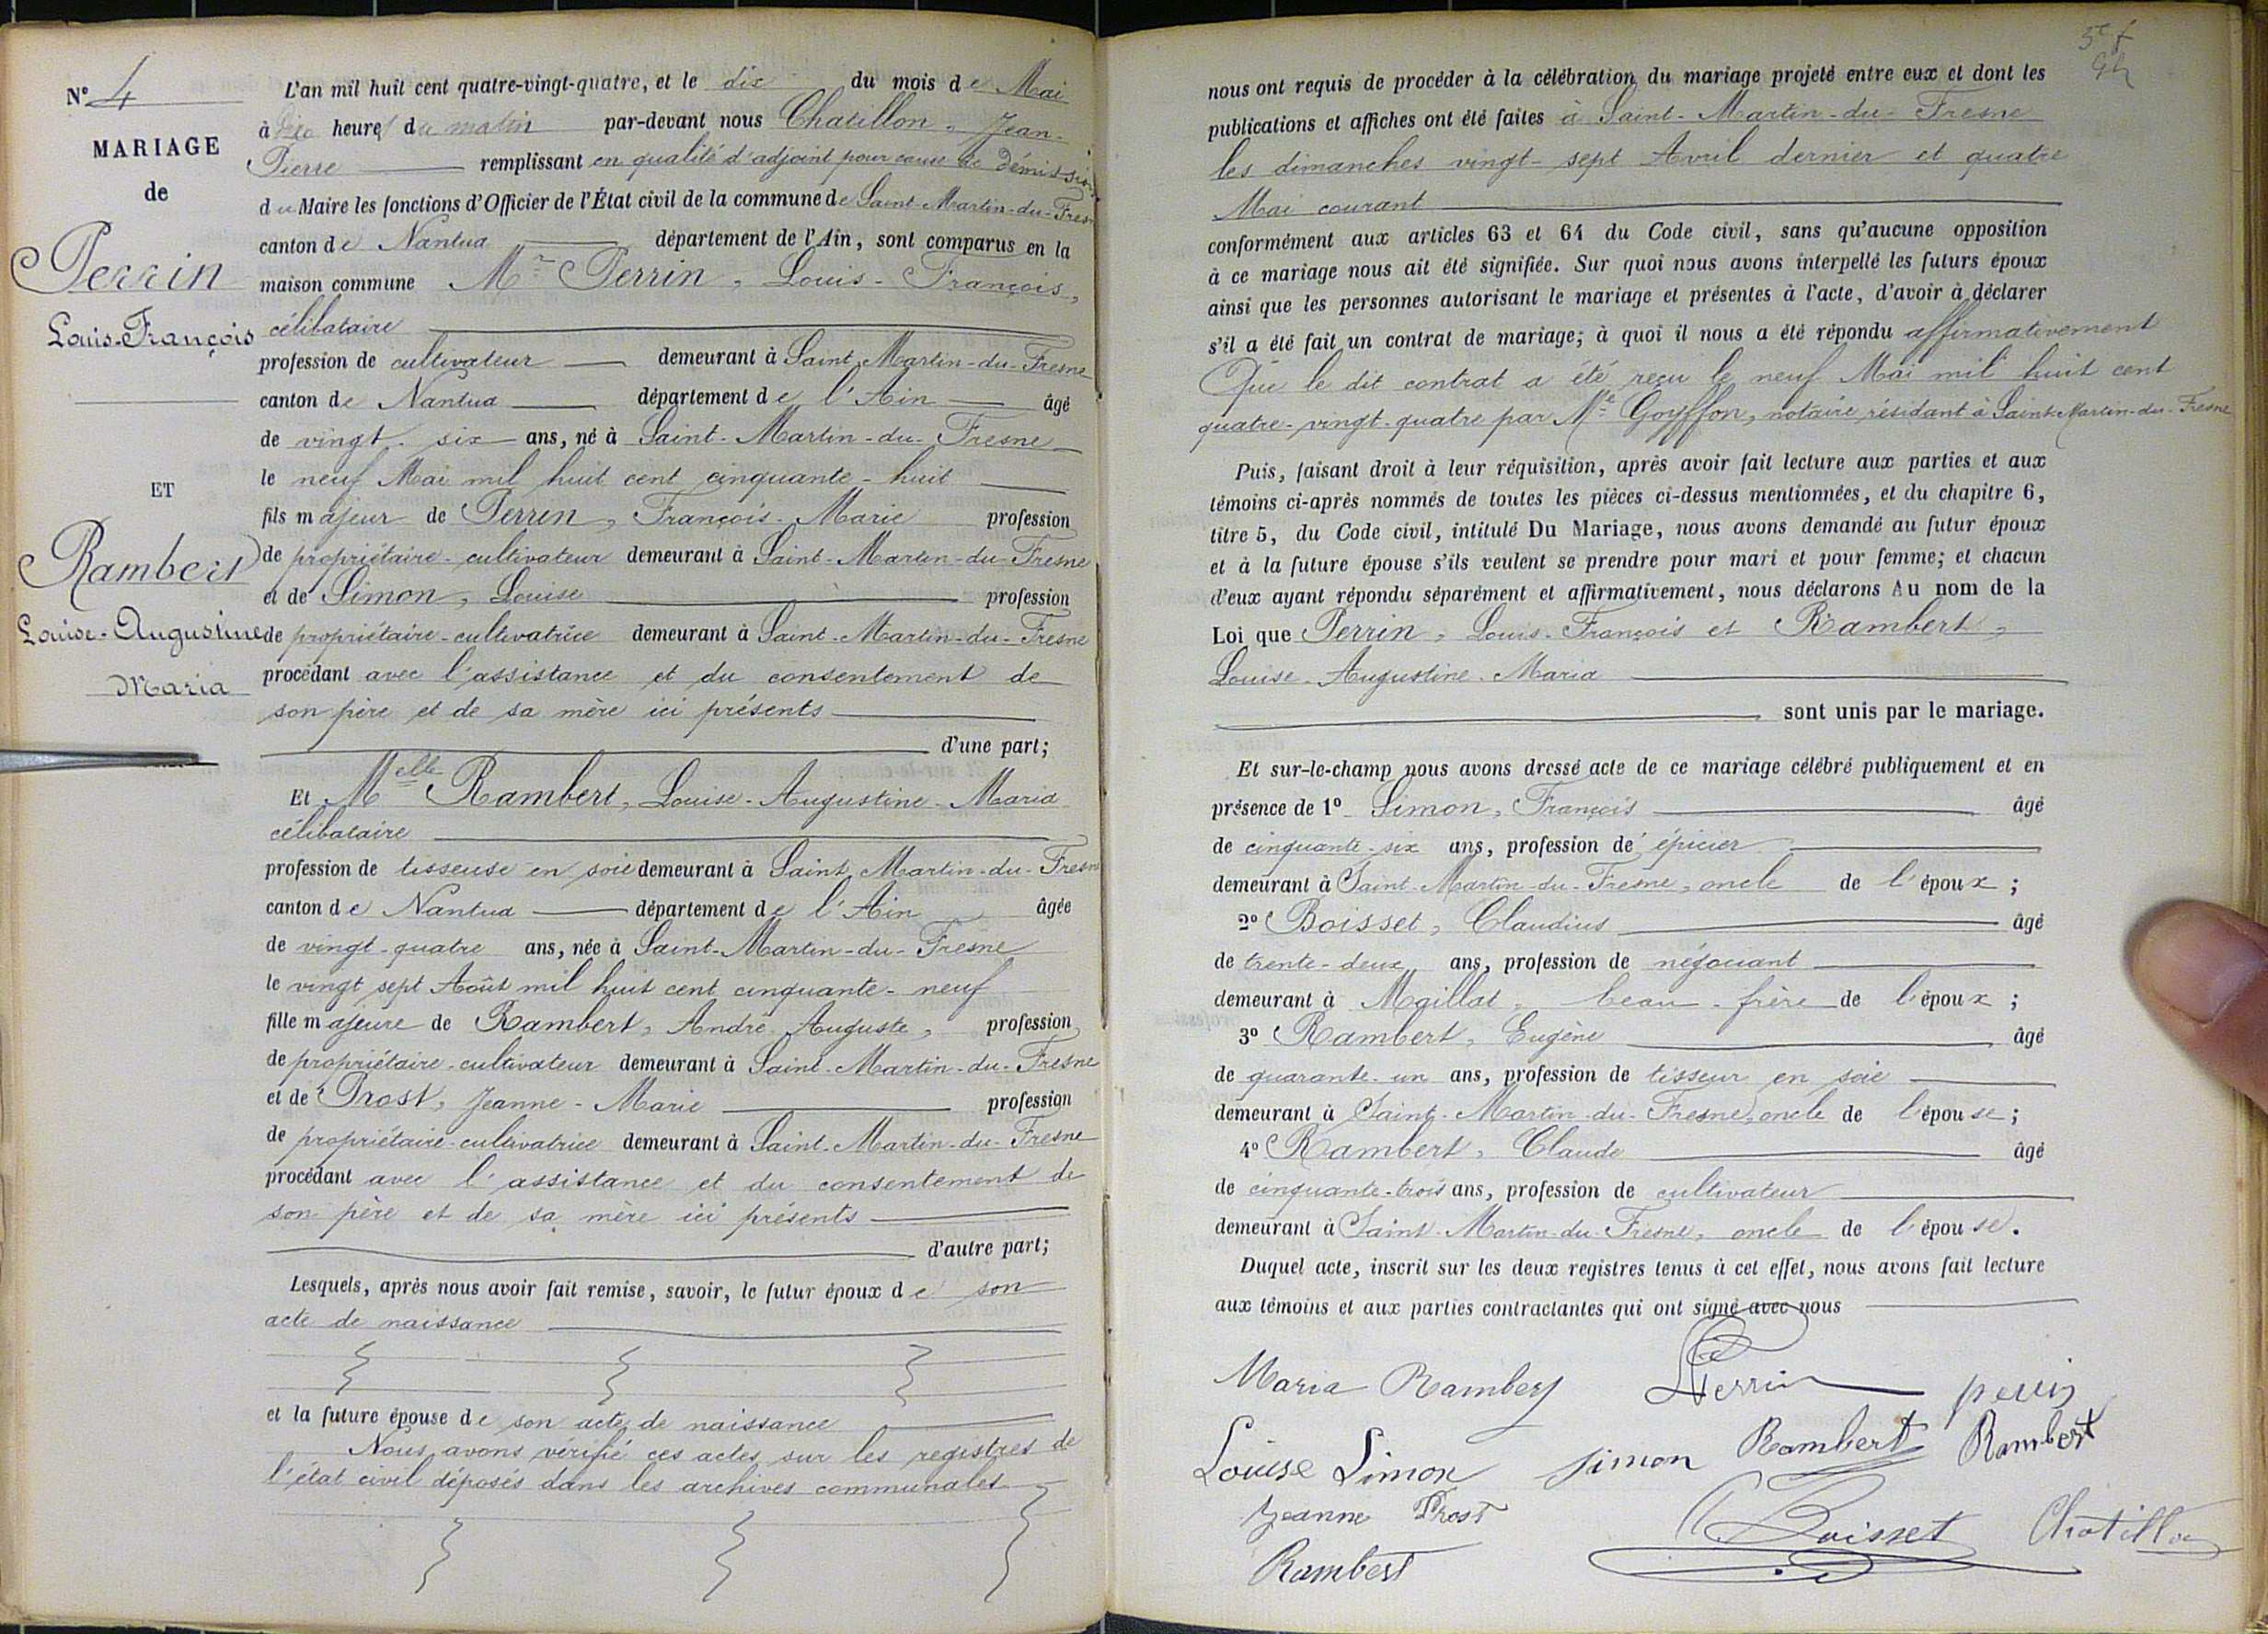 N° 4
MARIAGE
de
Perrin
Louis-François
ET
Rambert
Louise-Augustine
Maria
L'an mil huit cent quatre-vingt-quatre, et le dix du mois de Mai
à dix heures du matin par-devant nous Chatillon, Jean-
Pierre remplissant en qualité d'adjoint pour cause de Démission
du Maire les fonctions d'Officier de l'État civil de la commune de Saint-Martin-du-Fresne
canton de Nantua département de l'Ain, sont comparus en la
maison commune Mr Perrin, Louis-François,
célibataire
profession de cultivateur demeurant à Saint-Martin-du-Fresne
canton de Nantua département de l'Ain âgé
de vingt-six ans, né à Saint-Martin-du-Fresne
le neuf Mai mil huit cent cinquante-huit
fils majeur de Perrin, François-Marie profession
de propriétaire-cultivateur demeurant à Saint-Martin-du-Fresne
et de Simon, Louise profession
de propriétaire-cultivatrice demeurant à Saint-Martin-du-Fresne
procédant avec l'assistance et du consentement de
son père et de sa mère ici présents
d'une part;
Et Melle Rambert, Louise-Augustine-Maria
célibataire
profession de tisseuse en soie demeurant à Saint-Martin-du-Fresne
canton de Nantua département de l'Ain âgée
de vingt-quatre ans, née à Saint-Martin-du-Fresne
le vingt sept Août mil huit cent cinquante-neuf
fille majeure de Rambert, André-Auguste, profession
de propriétaire-cultivateur demeurant à Saint-Martin-du-Fresne
et de Prost, Jeanne-Marie profession
de propriétaire-cultivatrice demeurant à Saint-Martin-du-Fresne
procédant avec l'assistance et du consentement de
son père et de sa mère ici présents
d'autre part;
Lesquels, après nous avoir fait remise, savoir, le futur époux de son
acte de naissance
et la future épouse de son acte de naissance
Nous avons vérifié ces actes sur les registres de
l'état civil déposés dans les archives communales
nous ont requis de procéder à la célébration du mariage projeté entre eux et dont les
publications et affiches ont été faites à Saint-Martin-du-Fresne
les dimanches vingt-sept Avril dernier et quatre
Mai courant
conformément aux articles 63 et 64 du Code civil, sans qu'aucune opposition
à ce mariage nous ait été signifiée. Sur quoi nous avons interpellé les futurs époux
ainsi que les personnes autorisant le mariage et présentes à l'acte, d'avoir à déclarer
s'il a été fait un contrat de mariage; à quoi il nous a été répondu affirmativement
Que le dit contrat a été reçu le neuf Mai mil huit cent
quatre-vingt-quatre par Me Goyffon, notaire résidant à Saint-Martin-du-Fresne
Puis, faisant droit à leur réquisition, après avoir fait lecture aux parties et aux
témoins ci-après nommés de toutes les pièces ci-dessus mentionnées, et du chapitre 6,
titre 5, du Code civil, intitulé Du Mariage, nous avons demandé au futur époux
et à la future épouse s'ils veulent se prendre pour mari et pour femme; et chacun
d'eux ayant répondu séparément et affirmativement, nous déclarons Au nom de la
Loi que Perrin, Louis-François et Rambert,
Louise-Augustine-Maria
sont unis par le mariage.
Et sur-le-champ nous avons dressé acte de ce mariage célébré publiquement et en
présence de 1° Simon, François âgé
de cinquante-six ans, profession de épicier
demeurant à Saint-Martin-du-Fresne, oncle de l'époux;
2° Boisset, Claudius âgé
de trente-deux ans, profession de négociant
demeurant à Maillat, beau-frère de l'époux;
3° Rambert, Eugène âgé
de quarante-un ans, profession de tisseur en soie
demeurant à Saint-Martin-du-Fresne, oncle de l'épouse;
4° Rambert, Claude âgé
de cinquante-trois ans, profession de cultivateur
demeurant à Saint-Martin-du-Fresne, oncle de l'épouse.
Duquel acte, inscrit sur les deux registres tenus à cet effet, nous avons fait lecture
aux témoins et aux parties contractantes qui ont signé avec nous
Maria Rambert Perrin perrin
Louise Simon simon Rambert Rambert
Jeanne Prost Boisset Chatillon
Rambert